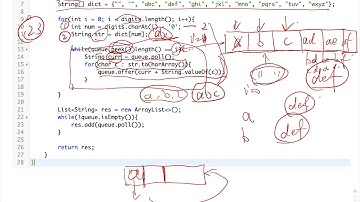 String[] dict = {"", "", "abc", "def", "ghi", "jkl", "mno", "pqrs", "tuv", "wxyz"};
for(int i = 0; i < digits.length(); i++){
int num = digits.charAt(i) - '0';
String str = dict[num];
while(queue.peek().length() == i){
String curr = queue.poll();
for(char c : str.toCharArray()){
queue.offer(curr + String.valueOf(c));
}
}
}
List<String> res = new ArrayList<>();
while(!queue.isEmpty()){
res.add(queue.poll());
}
return res;
}
}
23
a, b, c
abc
a b c ad ae af
" "
i=0
def
a def
b def